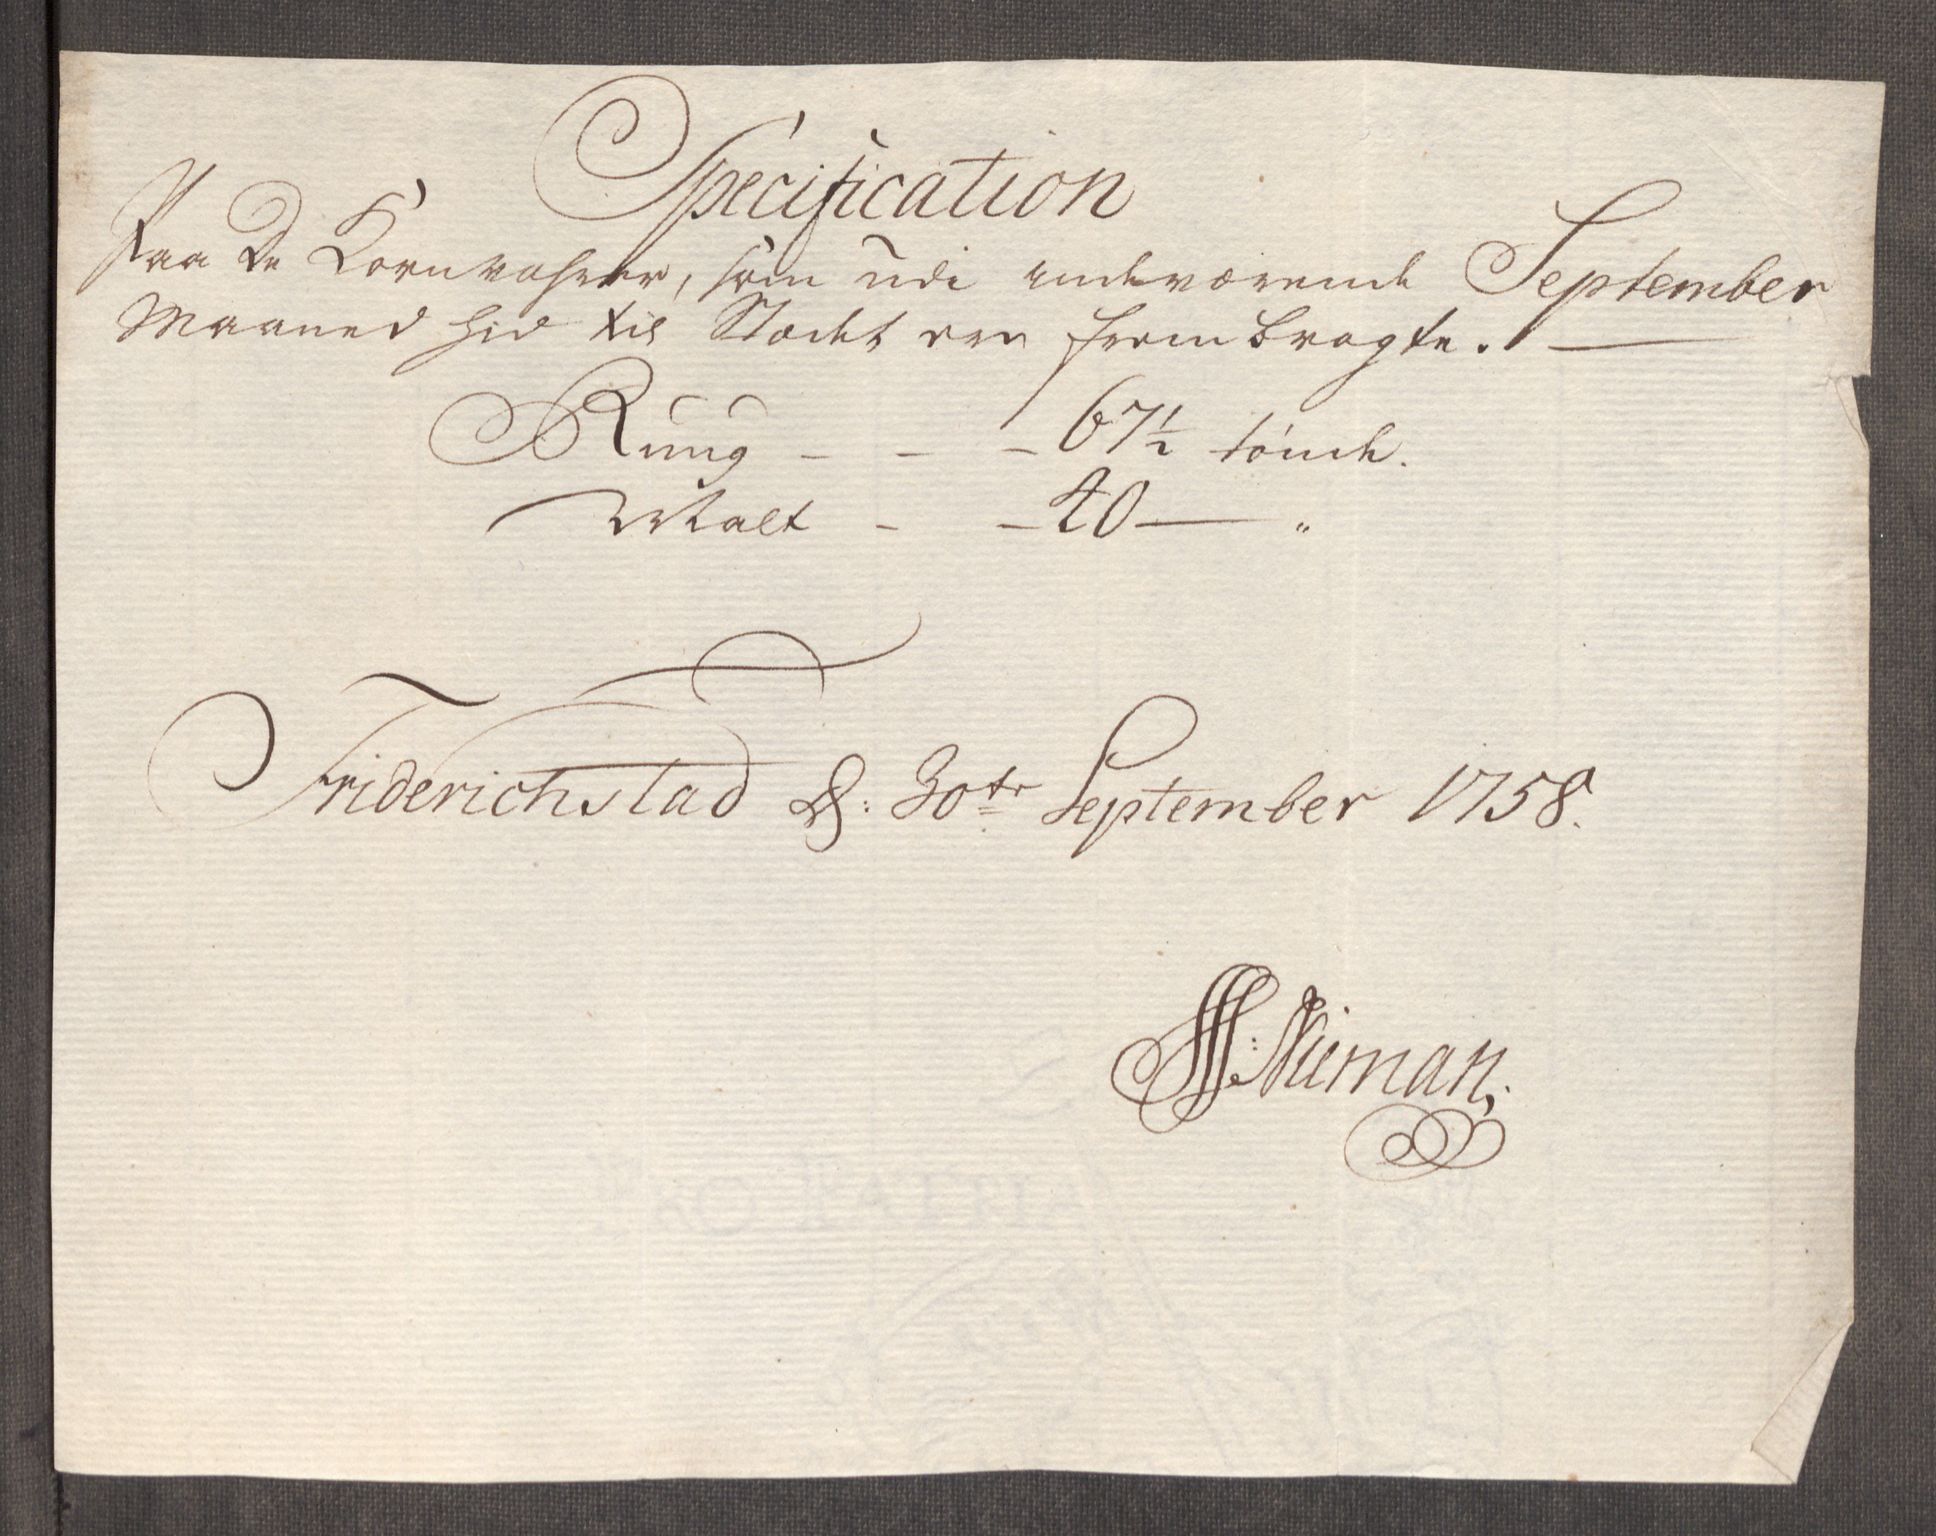 Specification
Paa De Kornvahrer, som udi indeværende September
Maaned hid til Stædet ere frembragte.
Ruug - - - 67 1/2 tønde.
Malt - - 40 — "
Friderichstad d: 30te September 1758.
Niman.